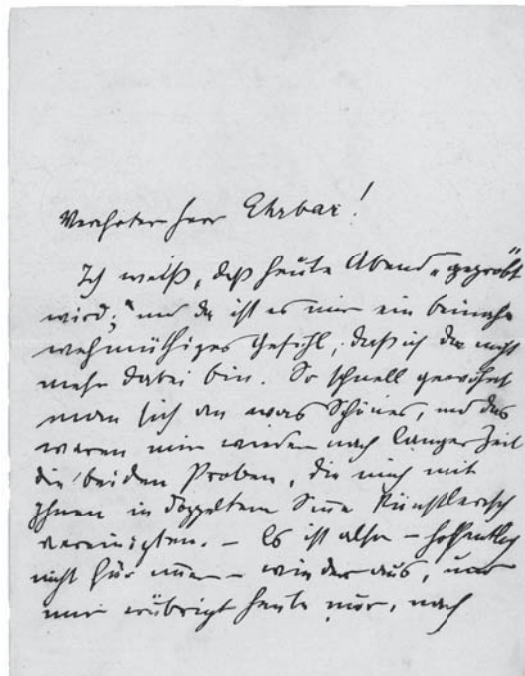 Verehrter Herr Ehrbar!
Ich weiß, daß heute Abend „geprobt
wird;" und da ist es mir ein beinahe
wehmüthiges Gefühl, daß ich da nicht
mehr dabei bin. So schnell gewöhnt
man sich an was Schönes, und das
waren mir wieder nach langer Zeit
die beiden Proben, die mich mit
Ihnen in doppeltem Sinne künstlerisch
vereinigten. – Es ist also – hoffentlich
nicht für immer – wieder aus, und
mir erübrigt heute nur, nach